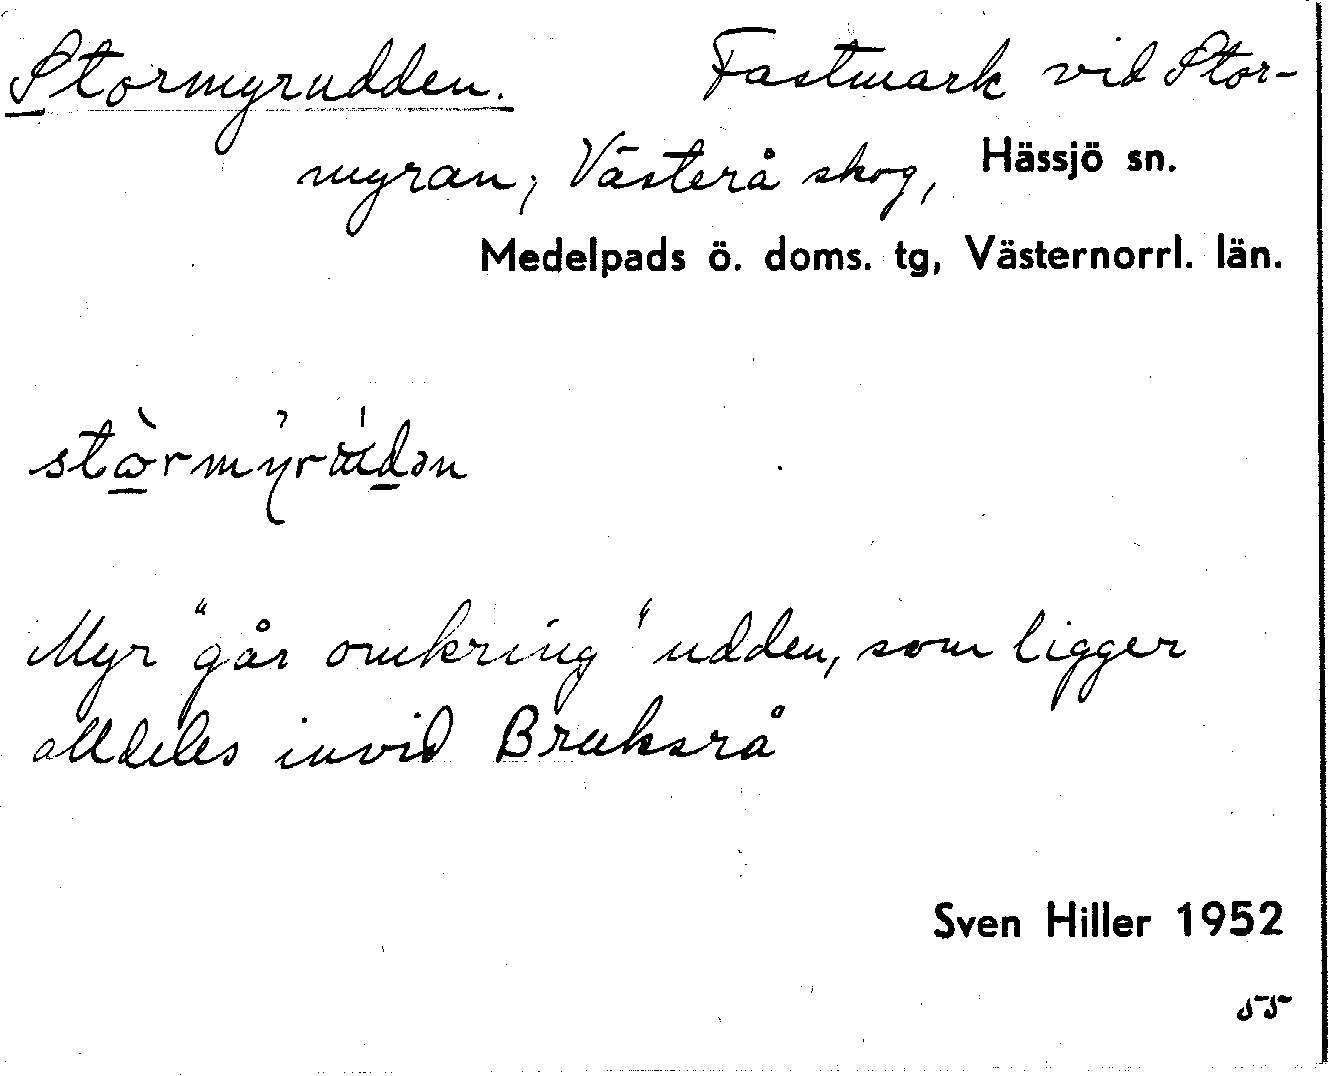 Stormyrudden. Fastmark vid Stor-
myran, Västerå skog, Hässjö sn.
Medelpads ö. doms. tg, Västernorrl. län.
Myr "går omkring" udden, som ligger
alldeles invid Bruksrå
Sven Hiller 1952
55